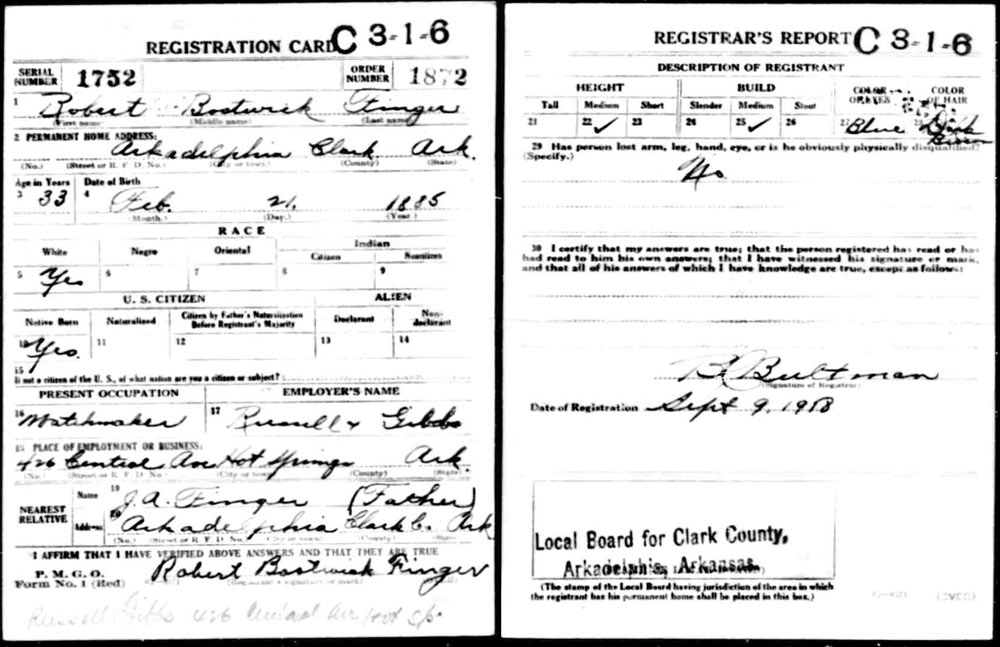 REGISTRATION CARD C 3-1-6
SERIAL NUMBER 1752 ORDER NUMBER 1872
1 Robert Bostwick Finger
(First name) (Middle name) (Last name)
2 PERMANENT HOME ADDRESS:
Arkadelphia Clark Ark.
(No.) (Street or R. F. D. No.) (City or town) (County) (State)
Age in Years Date of Birth
3 33 4 Feb. 21, 1885
(Month.) (Day.) (Year.)
RACE
White Negro Oriental Indian
Citizen Noncitizen
5 Yes 6 7 8 9
U. S. CITIZEN ALIEN
Native Born Naturalized Citizen by Father's Naturalization Before Registrant's Majority Declarant Non-declarant
10 Yes. 11 12 13 14
15
If not a citizen of the U. S., of what nation are you a citizen or subject?
PRESENT OCCUPATION EMPLOYER'S NAME
16 Watchmaker 17 Russell & Gibbs
18 PLACE OF EMPLOYMENT OR BUSINESS:
426 Central Ave Hot Springs Ark.
(No.) (Street or R. F. D. No.) (City or town) (County) (State)
NEAREST RELATIVE
Name 19 J. A. Finger (Father)
Address 20 Arkadelphia Clark Co. Ark
(No.) (Street or R. F. D. No.) (City or town) (County) (State)
I AFFIRM THAT I HAVE VERIFIED ABOVE ANSWERS AND THAT THEY ARE TRUE
P. M. G. O.
Form No. 1 (Red) Robert Bostwick Finger
(Registrant's signature or mark)
Russell Gibbs 426 Central Av Hot Sp.
REGISTRAR'S REPORT C 3-1-6
DESCRIPTION OF REGISTRANT
HEIGHT BUILD COLOR OF EYES COLOR OF HAIR
Tall Medium Short Slender Medium Stout
21 22 ✓ 23 24 25 ✓ 26 27 Blue 28 Dark Brown
29 Has person lost arm, leg, hand, eye, or is he obviously physically disqualified?
(Specify.) No
30 I certify that my answers are true; that the person registered has read or has
had read to him his own answers; that I have witnessed his signature or mark,
and that all of his answers of which I have knowledge are true, except as follows:
Bultman
(Signature of Registrar)
Date of Registration Sept 9, 1918
Local Board for Clark County,
Arkadelphia, Arkansas.
(The stamp of the Local Board having jurisdiction of the area in which
the registrant has his permanent home shall be placed in this box.)
(OVER)